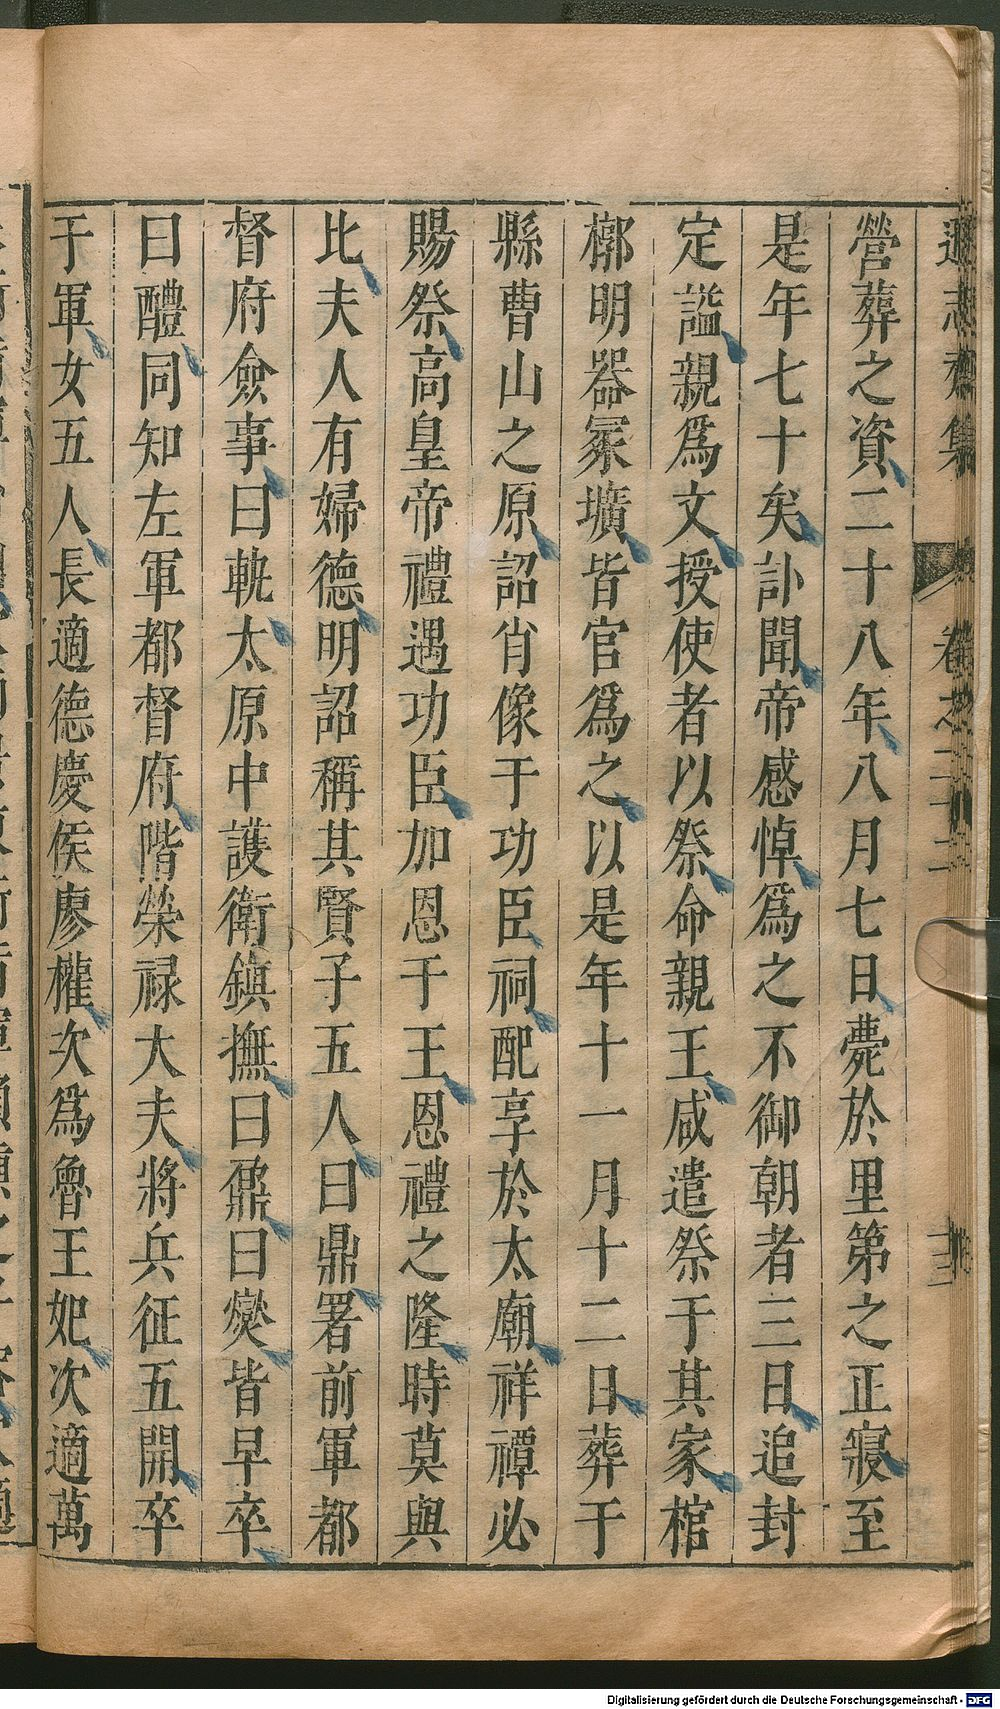 遜志齋集 卷之二十二
營葬之資二十八年八月七日薨於里第之正寢至
是年七十矣訃聞帝感悼爲之不御朝者三日追封
定謚親爲文授使者以祭命親王咸遣祭于其家棺
槨明器冢壙皆官爲之以是年十一月十二日葬于
縣曹山之原詔肖像于功臣祠配享於太廟祥禫必
賜祭高皇帝禮遇功臣加恩于王恩禮之隆時莫與
比夫人有婦德明詔稱其賢子五人曰鼎署前軍都
督府僉事曰軏太原中護衛鎮撫曰鼐曰爕皆早卒
曰醴同知左軍都督府階榮祿大夫將兵征五開卒
于軍女五人長適德慶侯廖權次爲魯王妃次適萬
Digitalisierung gefördert durch die Deutsche Forschungsgemeinschaft - DFG